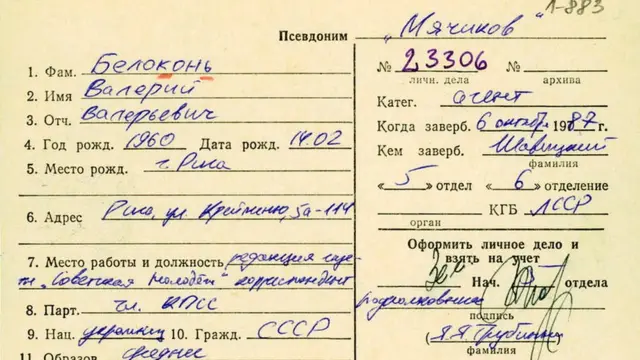 1-883
Псевдоним „Мячиков"
1. Фам. Белоконь
2. Имя Валерий
3. Отч. Валерьевич
4. Год рожд. 1960 Дата рожд. 14.02
5. Место рожд. г. Рига
6. Адрес Рига, ул. 5а-114
7. Место работы и должность редакция газе-
т „Советская молодёжь" корреспондент
8. Парт. чл. КПСС
9. Нац. украинец 10. Гражд. СССР
11. Образов. среднее
№ 23306 №
личн. дела архива
Катег. агент
Когда заверб. 6 октября 1987 г.
Кем заверб. Шавицкий
фамилия
« 5 » отдел « 6 » отделение
КГБ ЛССР
орган
Оформить личное дело и
взять на учет
Зам. Нач. 5 отдела
подполковник
подпись
(Я.Я. Трубиньш)
(фамилия)